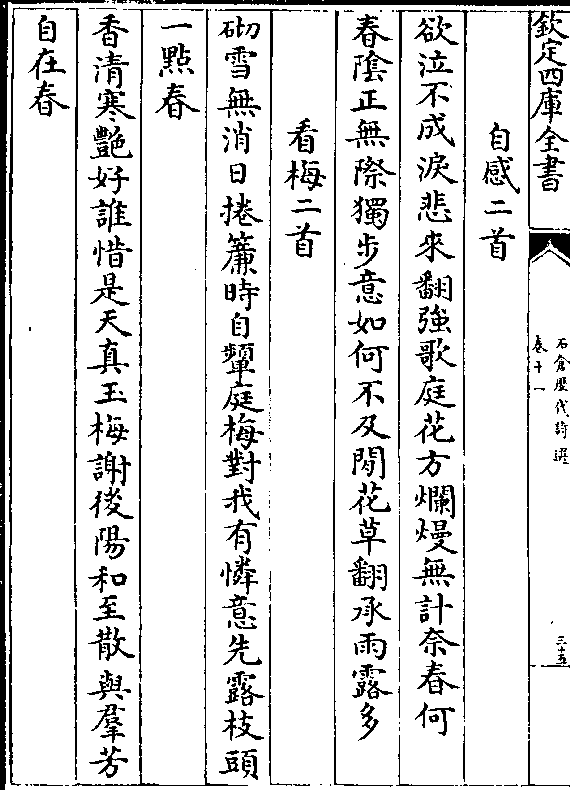 欽定四庫全書
石倉歷代詩選
卷十一
三十五
自感二首
欲泣不成淚悲來翻強歌庭花方爛熳無計奈春何
春隂正無際獨步意如何不及閒花草翻承雨露多
看梅二首
砌雪無消日捲簾時自顰庭梅對我有憐意先露枝頭
一點春
香清寒艷好誰惜是天真玉梅謝後陽和至散與羣芳
自在春